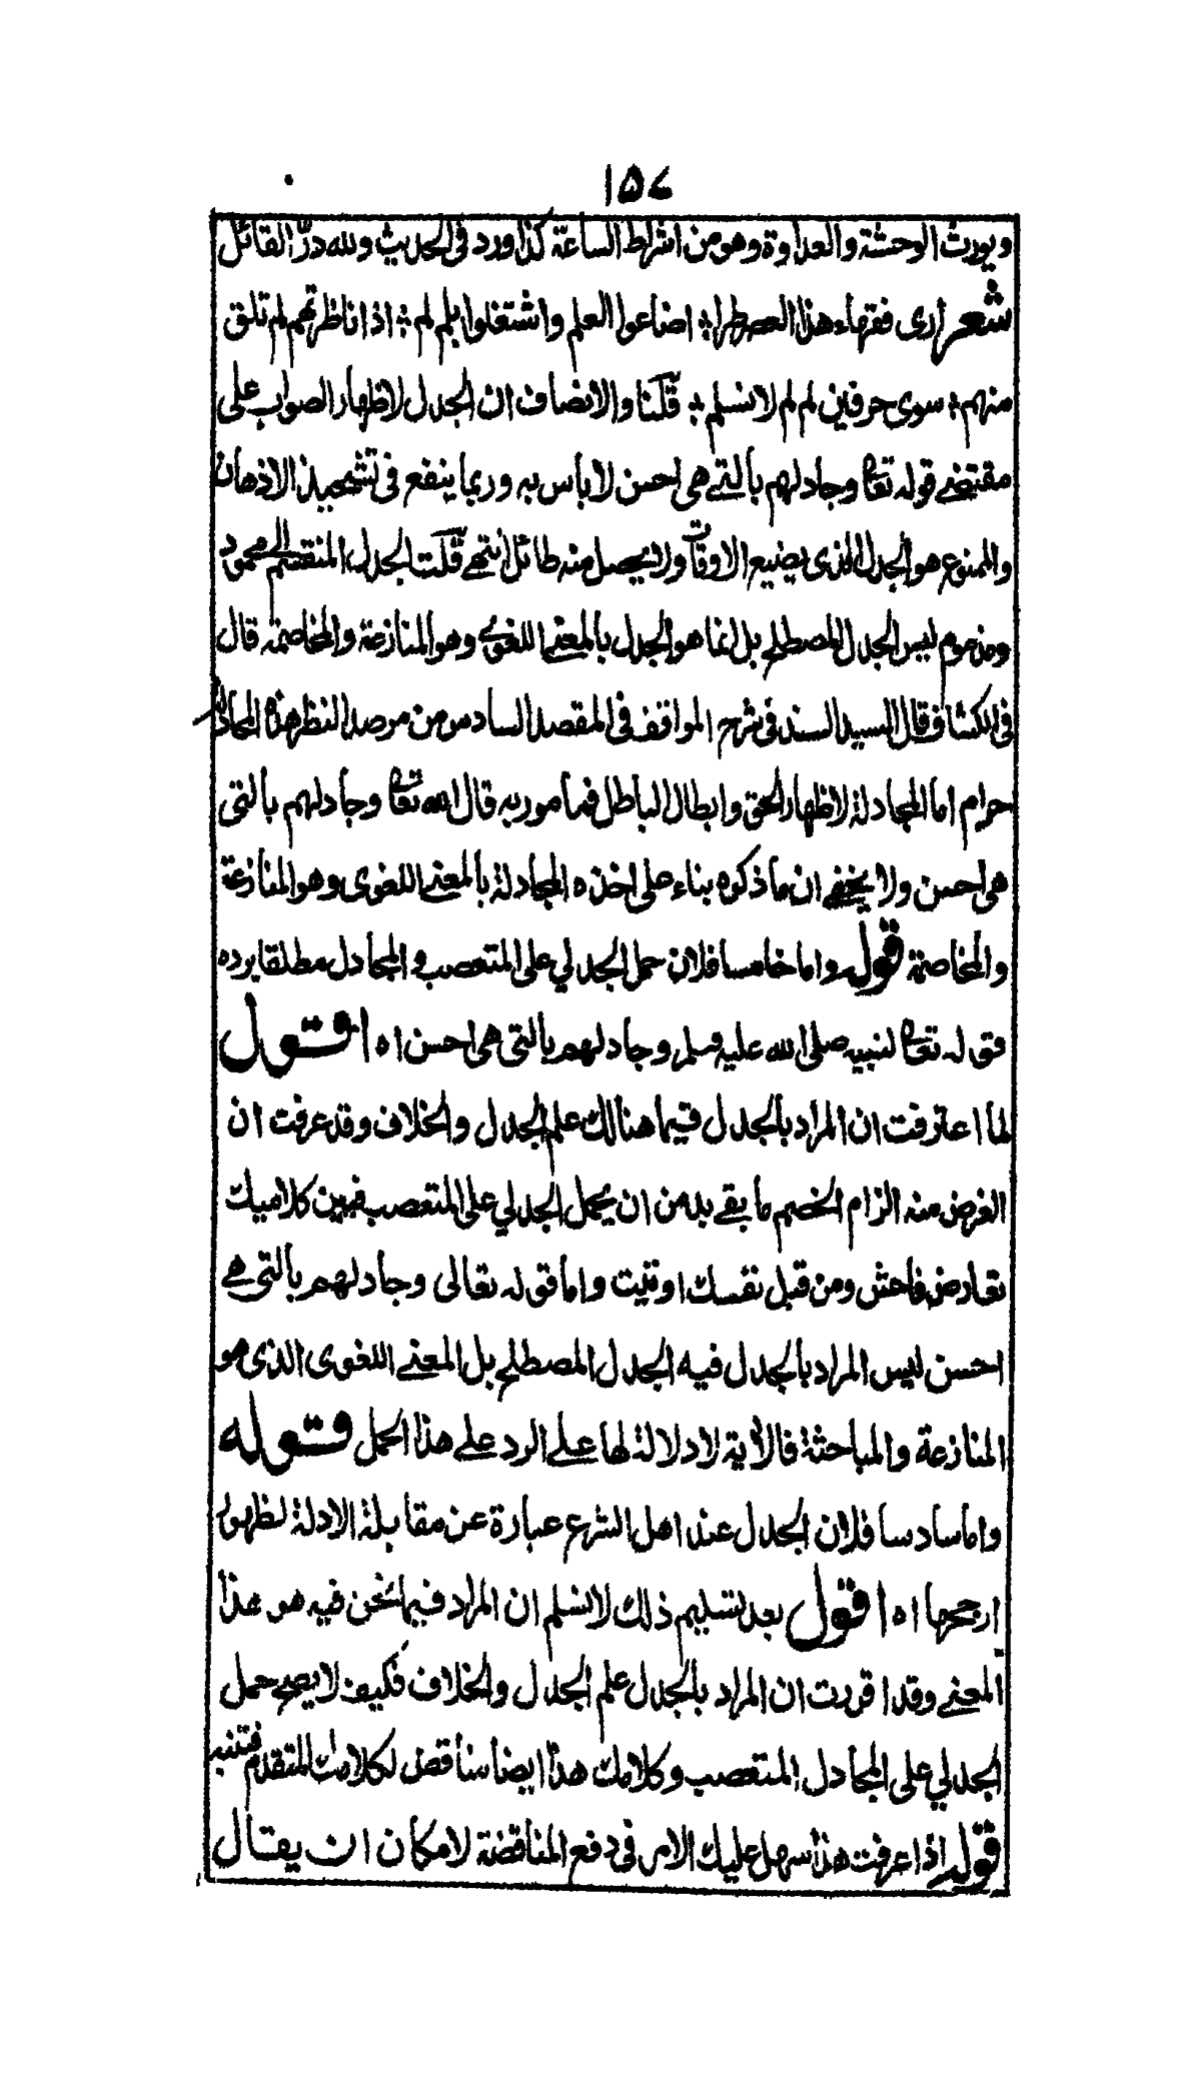 ١٥٧
ويورث الوحشة والعداوة وهو من اشراط الساعة كذا ورد فى الحديث ولله درّ القائل
شعر ارى فقهاء هذا العصر طرا ؛ اضاعوا العلم واشتغلوا بلم لم ؛ اذا ناظرتهم لم تلق
منهم ؛ سوى حرفين لم لم لا نسلم ؛ قلنا والانصاف ان الجدل لاظهار الصواب على
مقتضے قوله تعا وجادلهم بالتے هى احسن لا بأس به وربما ينفع فى تشحيذ الاذهان
والممنوع هو الجدل الذى يضيع الاوقات ولا يحصل منه طائل انتهے قلت الجدل المنقسم الى محمود
ومذموم ليس الجدل المصطلح بل انما هو الجدل بالمعنے اللغوى وهو المنازعة والمخاصمة قال
فى الكشاف قال السيد السند فى شرح المواقف فى المقصد السادس من مرصد النظر هذه المجادلة
حرام اما المجادلة لاظهار الحق وابطال الباطل فمأمور به قال الله تعا وجادلهم بالتى
هى احسن ولا يخفے ان ما ذكره بناء على اخذه المجادلة بالمعنے اللغوى وهو المنازعة
والمخاصمة قوله واما خامسا فلان حمل الجدلي على المتعصب والمجادل مطلقا يرده
قوله تعا لنبيه صلى الله عليه وسلم وجادلهم بالتى هى احسن اه اقول
لما اعترفت ان المراد بالجدل فيما هنالك علم الجدل والخلاف وقد عرفت ان
الغرض منه الزام الخصم ما بقے بد من ان يحمل الجدلي على المتعصب فبين كلاميك
تعارض فاحش ومن قبل نفسك اوتيت واما قوله تعالى وجادلهم بالتى هے
احسن ليس المراد بالجدل فيه الجدل المصطلح بل المعنے اللغوى الذى هو
المنازعة والمباحثة فالآية لا دلالة لها على الرد على هذا الحمل قوله
واما سادسا فلان الجدل عند اهل الشرع عبارة عن مقابلة الادلة لظهور
ارجحها اه اقول بعد تسليم ذلك لا نسلم ان المراد فيما نحن فيه هو هذا
المعنے وقد اقررت ان المراد بالجدل علم الجدل والخلاف فكيف لا يصح حمل
الجدلي على المجادل المتعصب وكلامك هذا ايضا مناقض لكلامك المتقدم فتنبه
قوله اذا عرفت هذا سهل عليك الامر فى دفع المناقضة لامكان ان يقال